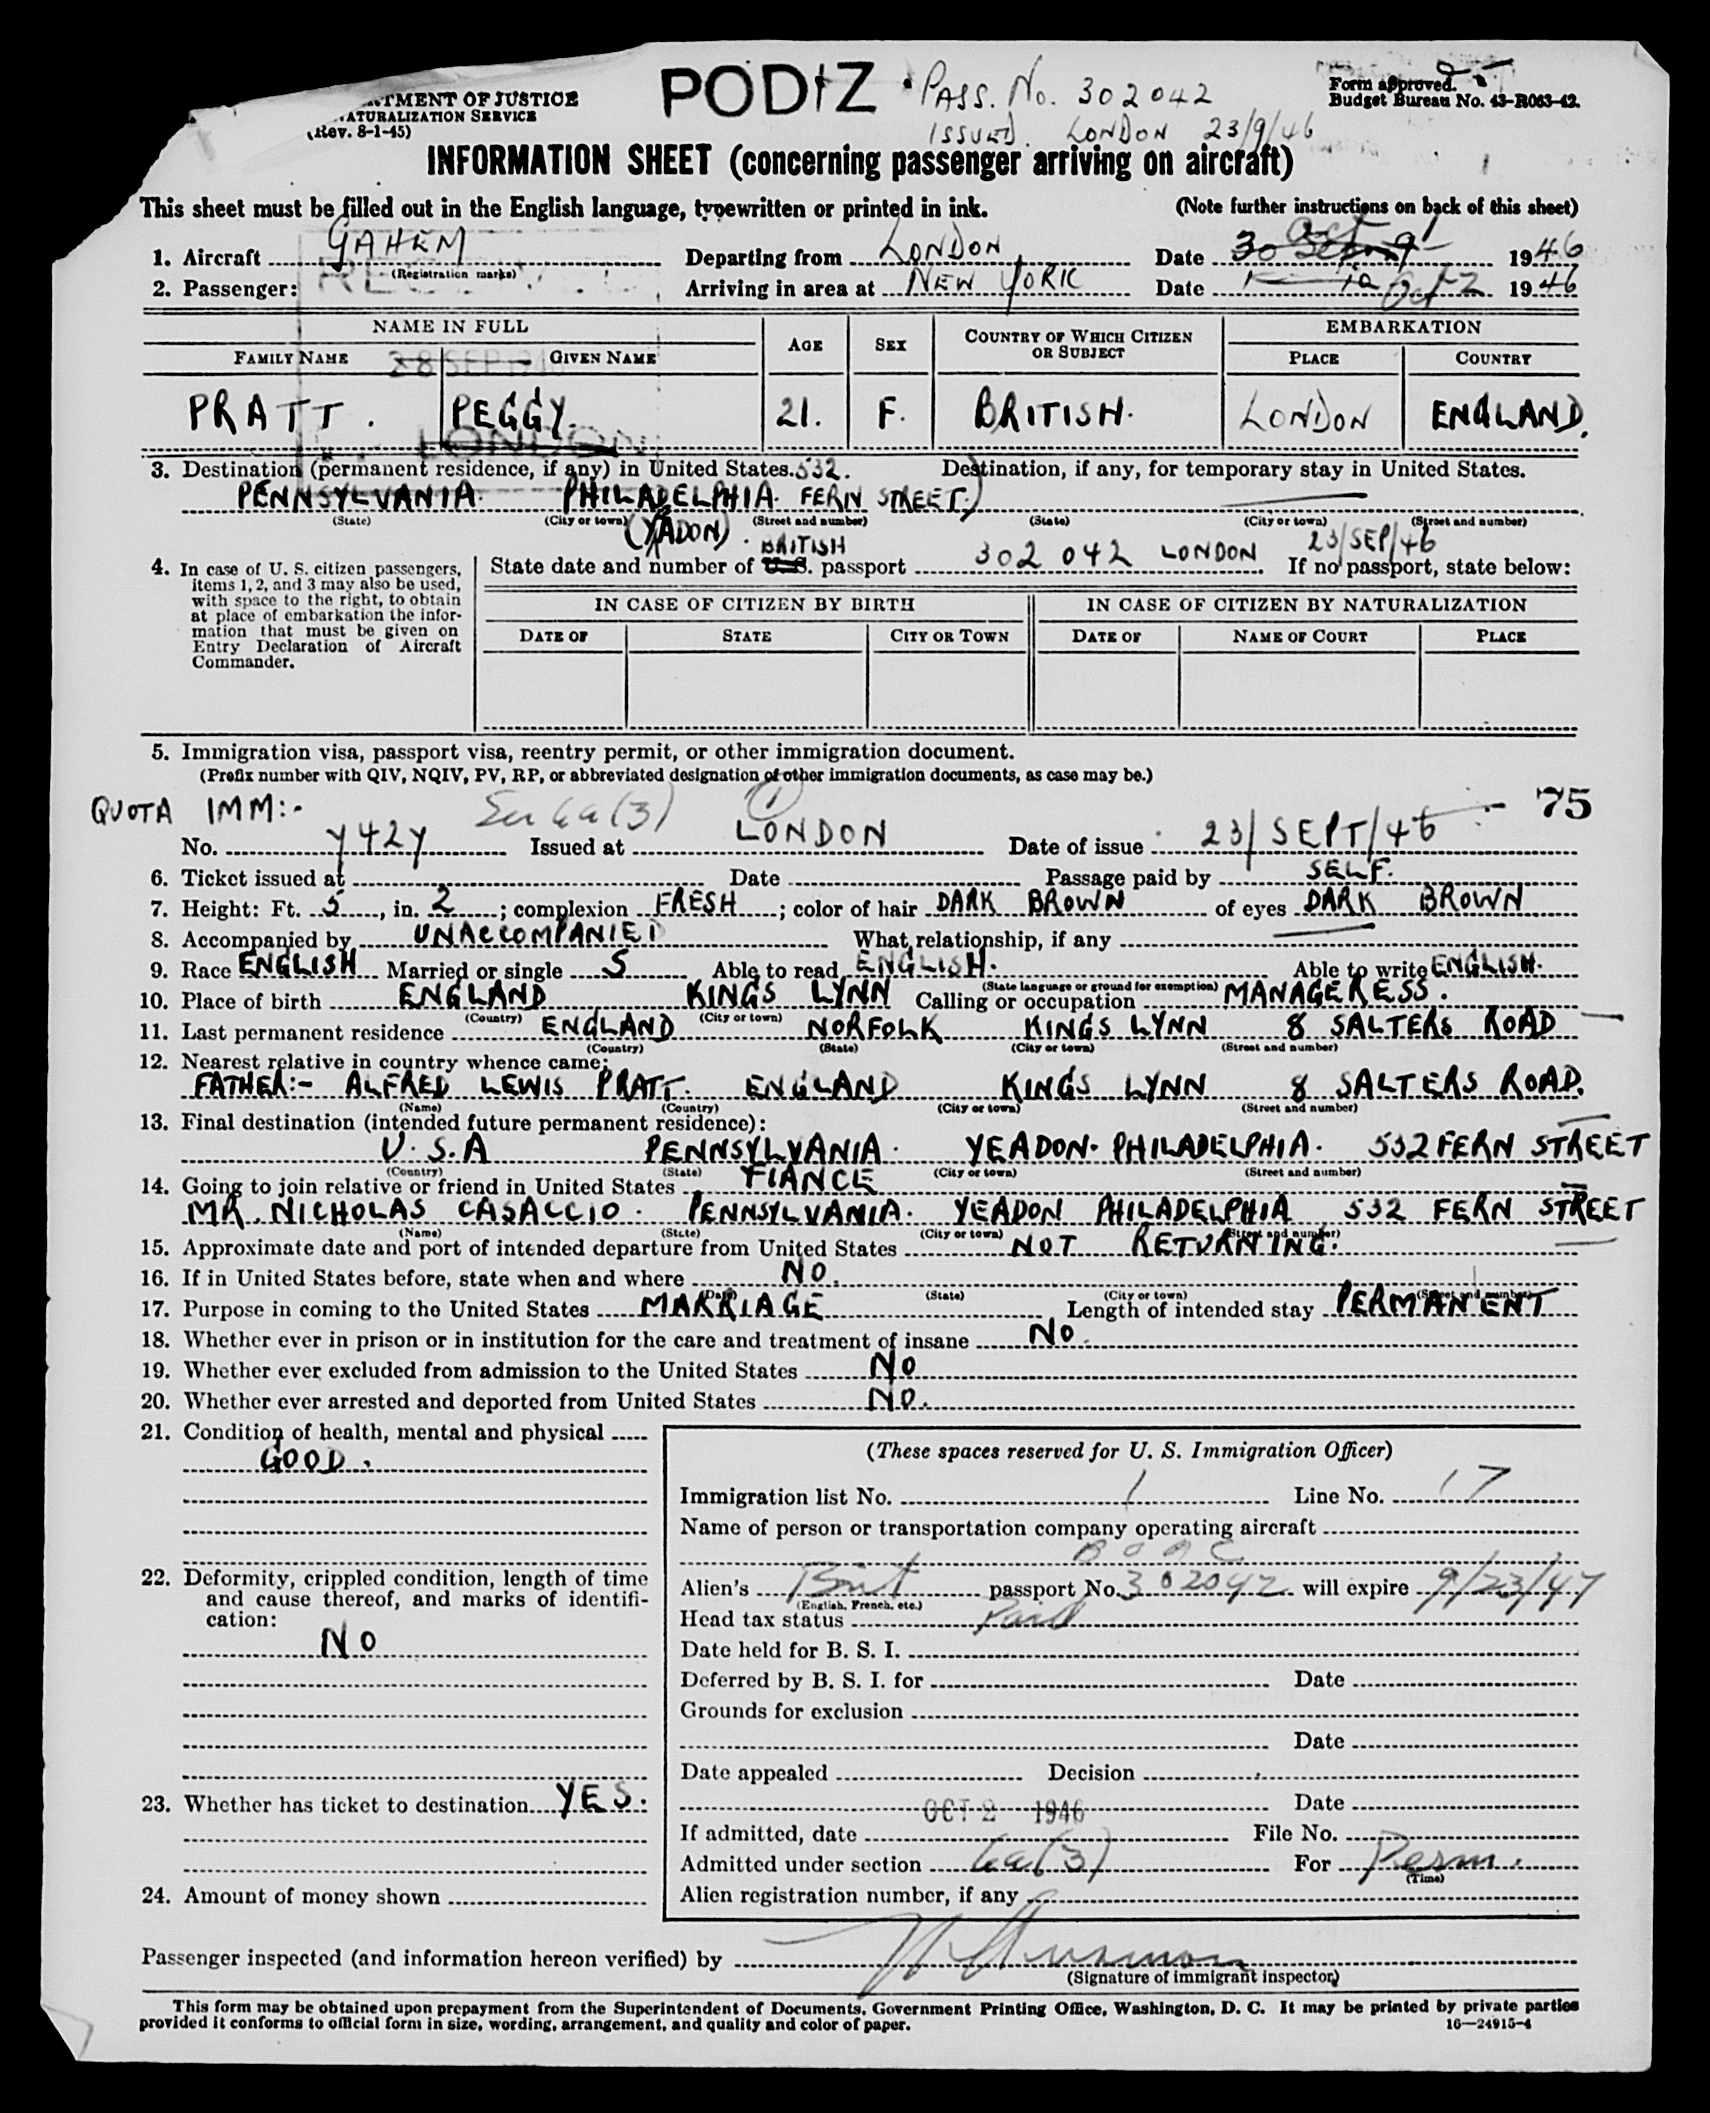 PODIZ · PASS. No. 302042
ISSUED. LONDON 23/9/46
Form approved.
Budget Bureau No. 43-R063-42.
TMENT OF JUSTICE
ATURALIZATION SERVICE
(Rev. 8-1-45)
INFORMATION SHEET (concerning passenger arriving on aircraft)
This sheet must be filled out in the English language, typewritten or printed in ink. (Note further instructions on back of this sheet)
1. Aircraft GAHEM Departing from LONDON Date 30 Sept Oct 1 1946
(Registration marks)
2. Passenger: Arriving in area at NEW YORK Date Oct 2 1946
NAME IN FULL AGE SEX COUNTRY OF WHICH CITIZEN OR SUBJECT EMBARKATION
FAMILY NAME GIVEN NAME PLACE COUNTRY
28 SEP 1946
PRATT. PEGGY. 21. F. BRITISH. LONDON ENGLAND.
LONDON
3. Destination (permanent residence, if any) in United States. 532. Destination, if any, for temporary stay in United States.
PENNSYLVANIA. PHILADELPHIA. FERN STREET.)
(State) (City or town) (Street and number) (State) (City or town) (Street and number)
(YEADON). BRITISH 23/SEP/46
4. In case of U. S. citizen passengers, items 1, 2, and 3 may also be used, with space to the right, to obtain at place of embarkation the information that must be given on Entry Declaration of Aircraft Commander.
State date and number of U. S. passport 302 042 LONDON If no passport, state below:
IN CASE OF CITIZEN BY BIRTH IN CASE OF CITIZEN BY NATURALIZATION
DATE OF STATE CITY OR TOWN DATE OF NAME OF COURT PLACE
5. Immigration visa, passport visa, reentry permit, or other immigration document.
(Prefix number with QIV, NQIV, PV, RP, or abbreviated designation of other immigration documents, as case may be.)
QUOTA IMM:- Sec 6a(3) (1) 75
No. Y42Y Issued at LONDON Date of issue 23/SEPT/46
6. Ticket issued at Date Passage paid by SELF.
7. Height: Ft. 5, in. 2; complexion FRESH; color of hair DARK BROWN of eyes DARK BROWN
8. Accompanied by UNACCOMPANIED What relationship, if any
9. Race ENGLISH Married or single S Able to read ENGLISH. Able to write ENGLISH.
(State language or ground for exemption)
10. Place of birth ENGLAND KINGS LYNN Calling or occupation MANAGERESS.
(Country) (City or town)
11. Last permanent residence ENGLAND NORFOLK KINGS LYNN 8 SALTERS ROAD
(Country) (State) (City or town) (Street and number)
12. Nearest relative in country whence came:
FATHER:- ALFRED LEWIS PRATT. ENGLAND KINGS LYNN 8 SALTERS ROAD.
(Name) (Country) (City or town) (Street and number)
13. Final destination (intended future permanent residence):
U.S.A PENNSYLVANIA. YEADON. PHILADELPHIA. 532 FERN STREET
(Country) (State) (City or town) (Street and number)
14. Going to join relative or friend in United States FIANCE
MR. NICHOLAS CASACCIO. PENNSYLVANIA. YEADON PHILADELPHIA 532 FERN STREET
(Name) (State) (City or town) (Street and number)
15. Approximate date and port of intended departure from United States NOT RETURNING.
16. If in United States before, state when and where NO.
(Date) (State) (City or town) (Street and number)
17. Purpose in coming to the United States MARRIAGE Length of intended stay PERMANENT
18. Whether ever in prison or in institution for the care and treatment of insane NO.
19. Whether ever excluded from admission to the United States NO
20. Whether ever arrested and deported from United States NO.
21. Condition of health, mental and physical
GOOD.
22. Deformity, crippled condition, length of time
and cause thereof, and marks of identifi-
cation:
NO
23. Whether has ticket to destination YES.
24. Amount of money shown
(These spaces reserved for U. S. Immigration Officer)
Immigration list No. 1 Line No. 17
Name of person or transportation company operating aircraft
B O A C
Alien's Brit passport No. 302042 will expire 9/23/47
(English, French, etc.)
Head tax status Paid
Date held for B. S. I.
Deferred by B. S. I. for Date
Grounds for exclusion
Date
Date appealed Decision
Date
OCT 2 1946
If admitted, date File No.
Admitted under section 6a(3) For Perm.
(Time)
Alien registration number, if any
Passenger inspected (and information hereon verified) by
(Signature of immigrant inspector)
This form may be obtained upon prepayment from the Superintendent of Documents, Government Printing Office, Washington, D. C. It may be printed by private parties
provided it conforms to official form in size, wording, arrangement, and quality and color of paper. 16—24915-4